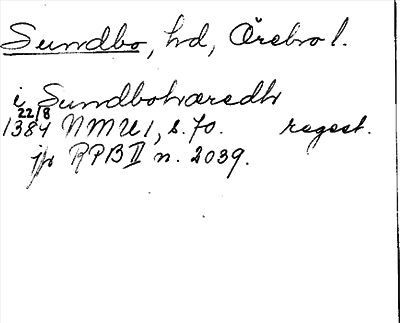 Sundbo, hd, Örebro l.
i Sundbohæredh
22/8
1384 NMU 1, s. 70. regest.
jfr RPB II n. 2039.